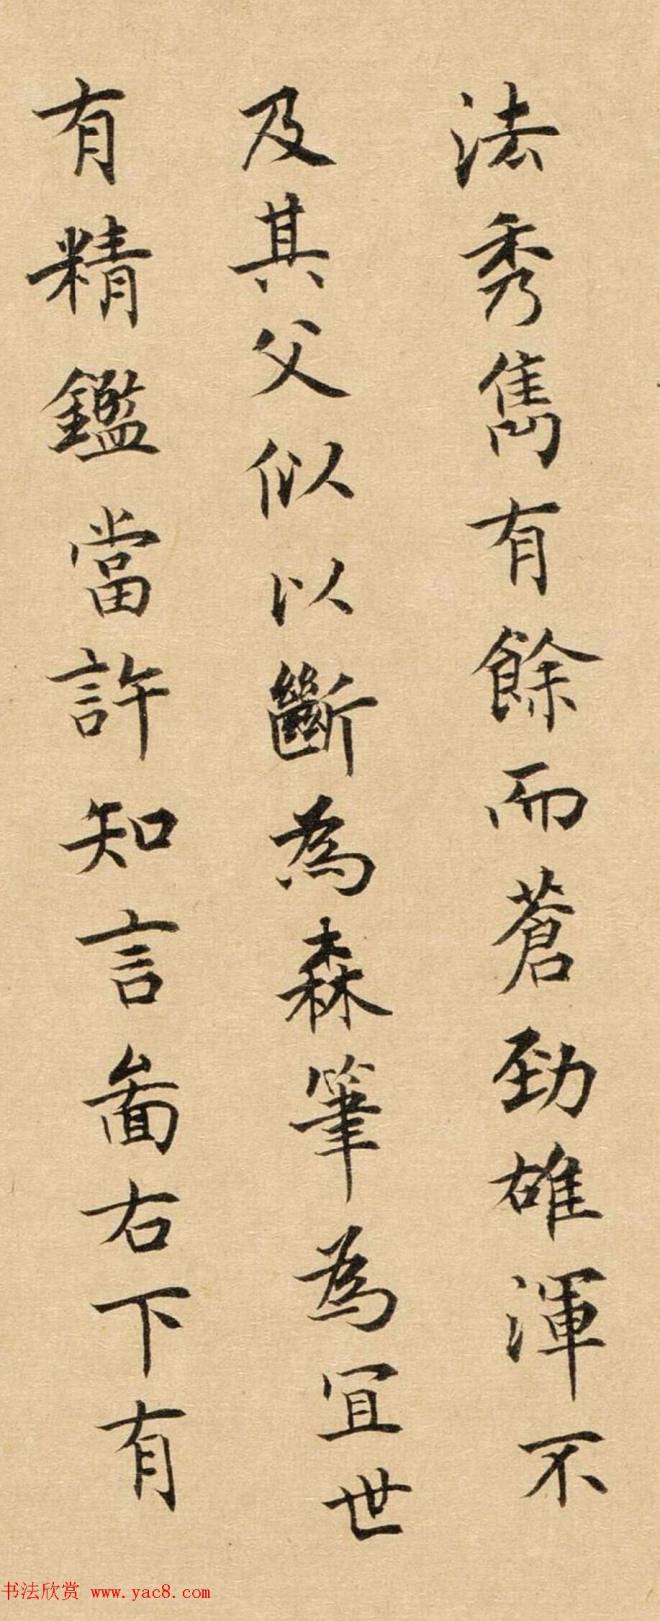 法秀雋有餘而蒼勁雄渾不
及其父似以斷為森筆為宜世
有精鑑當許知言畫右下有
书法欣赏 www.yac8.com